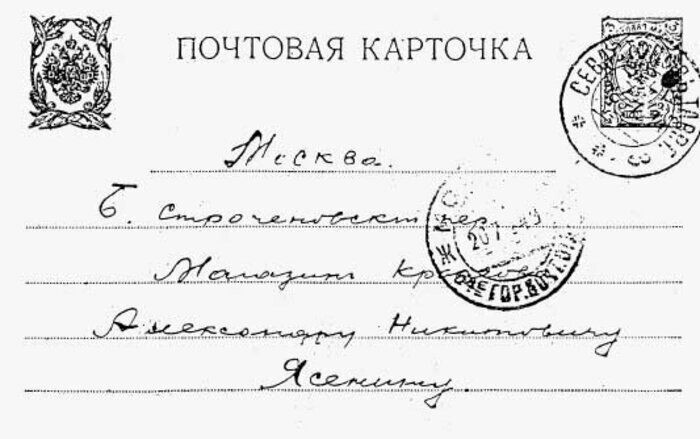 ПОЧТОВАЯ КАРТОЧКА
Москва.
Б. Строченовскій пер.
Магазинъ
Александру Никитовичу
Ясенину.
64Е ГОР. ПОЧТ. ОТД.